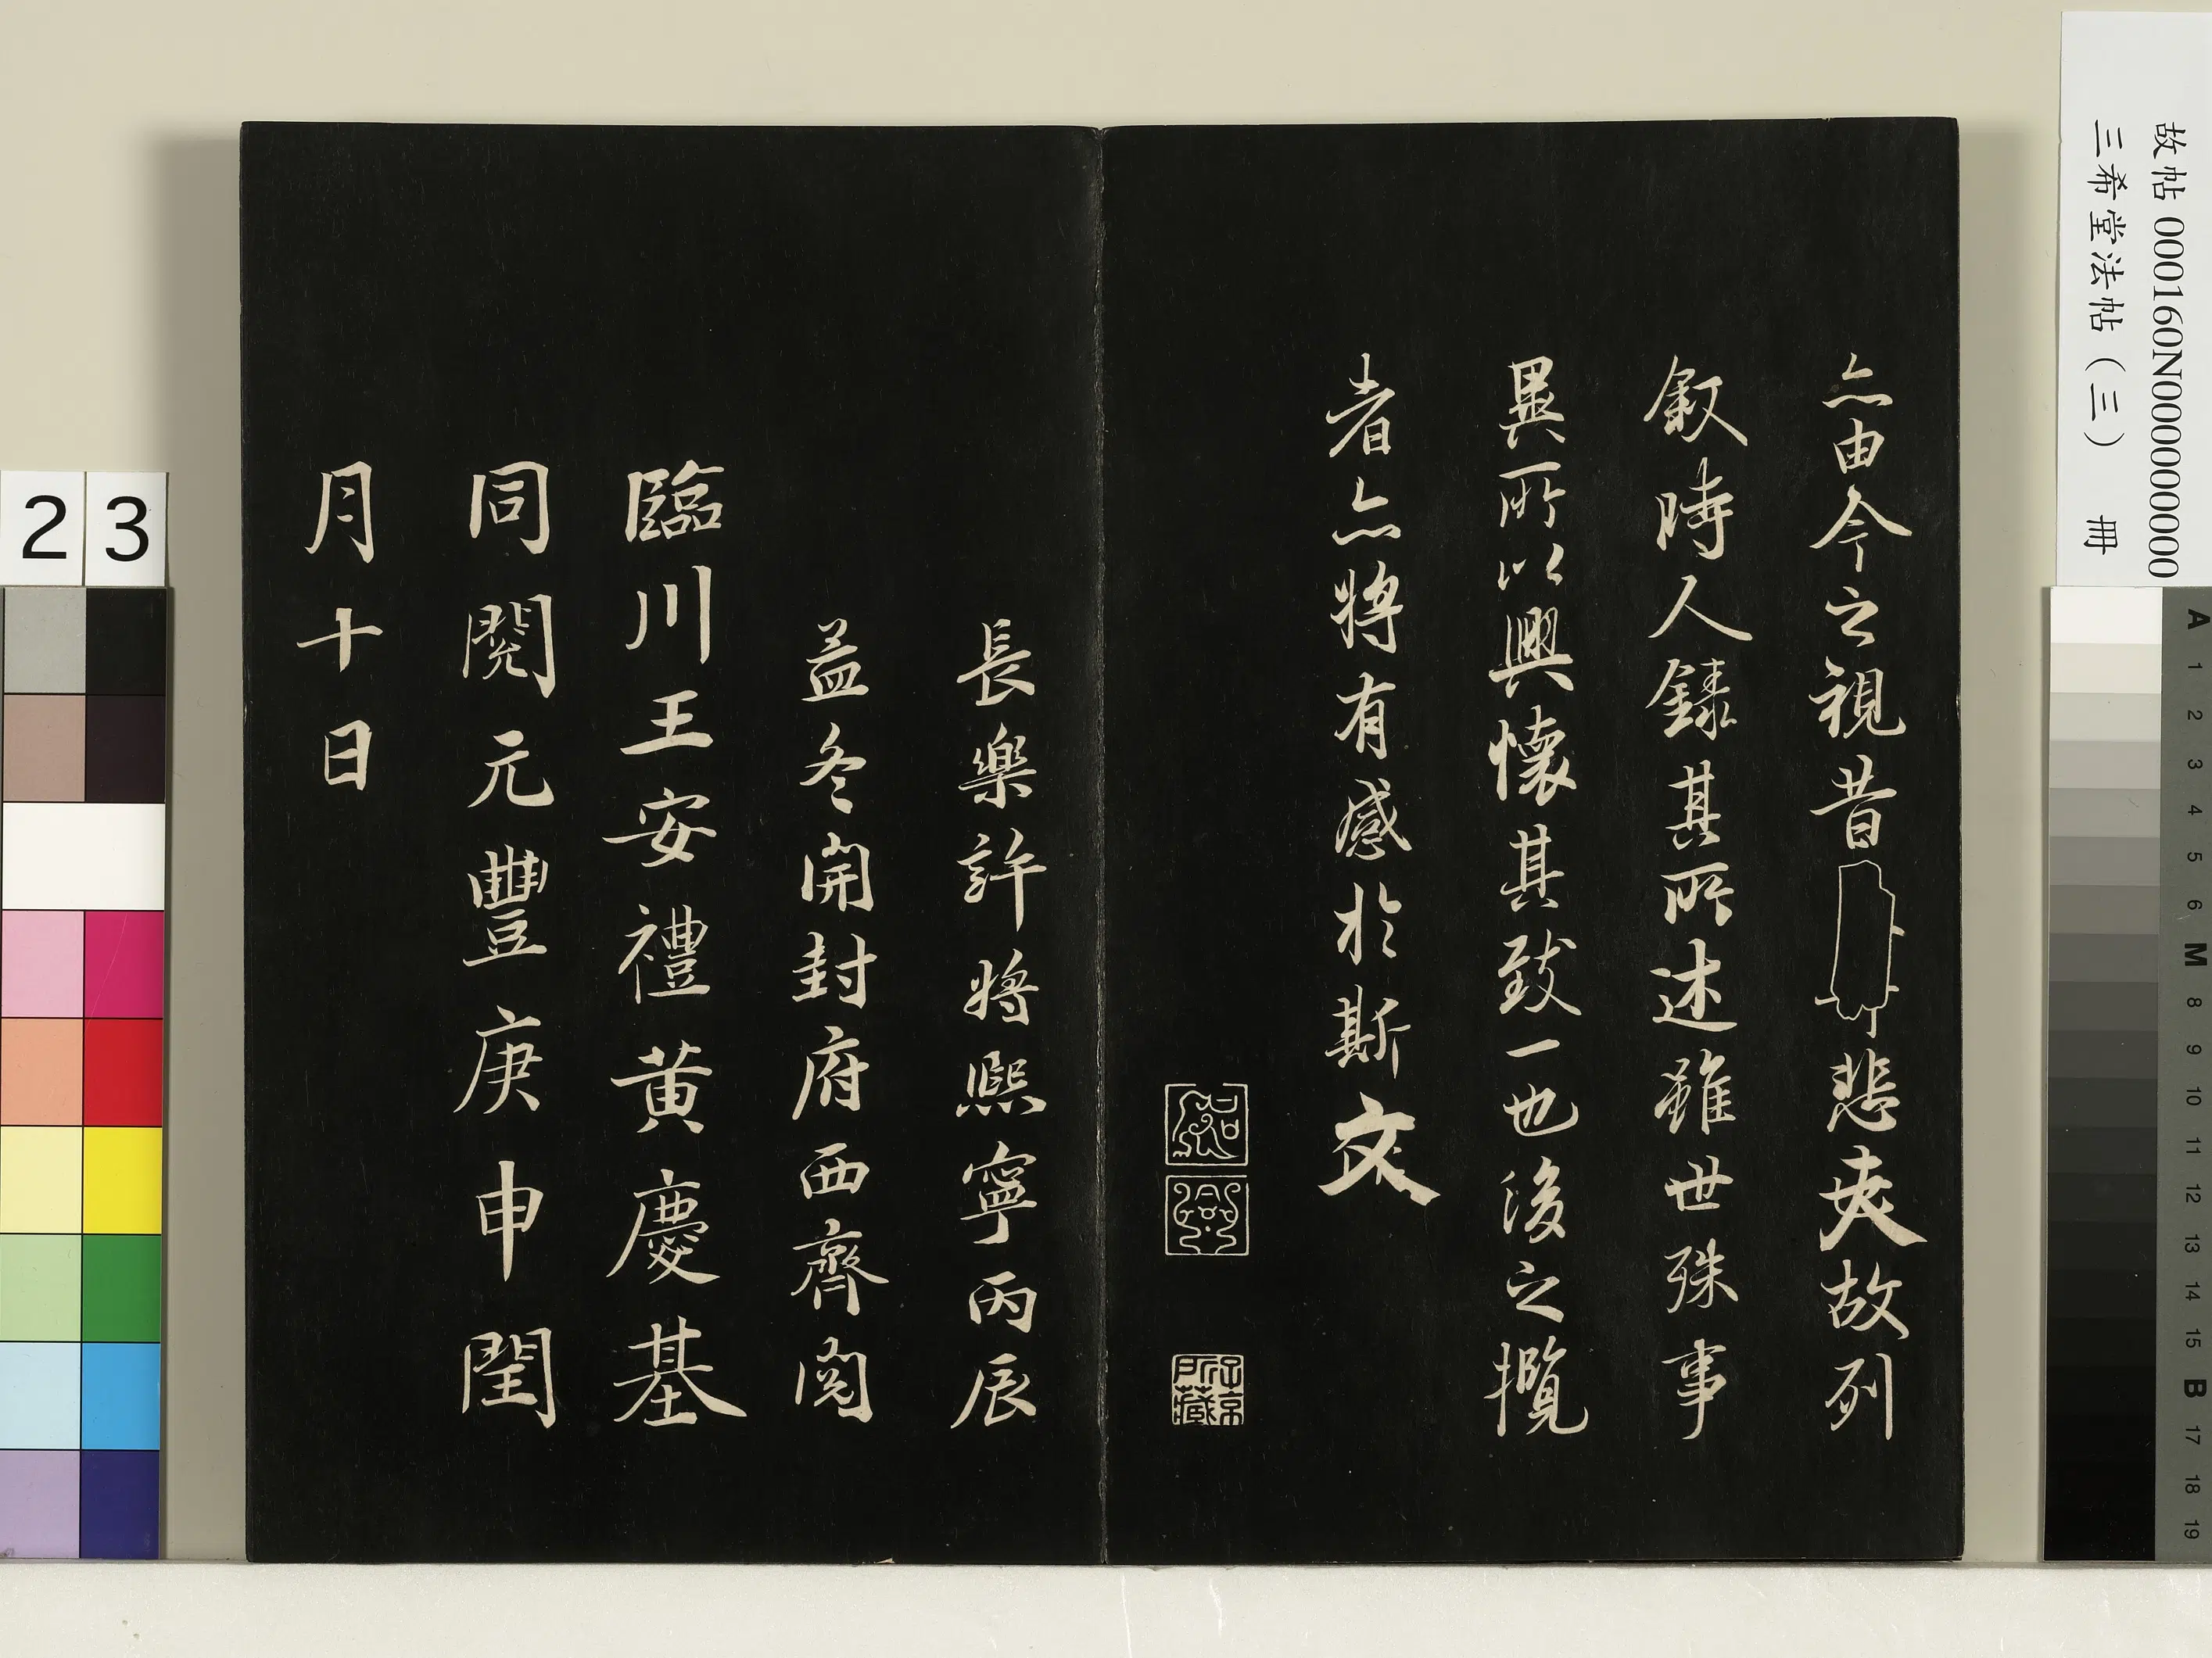 亦由今之視昔悲夫故列
叙時人錄其所述雖世殊事
異所以興懷其致一也後之攬
者亦將有感於斯文
子京所藏
長樂許將熙寧丙辰
孟冬開封府西齋閱
臨川王安禮黃慶基
同閱元豐庚申閏
月十日
故帖 000160N000000000
三希堂法帖（三） 冊
23
A 1 2 3 4 5 6 M 8 9 10 11 12 13 14 15 B 17 18 19